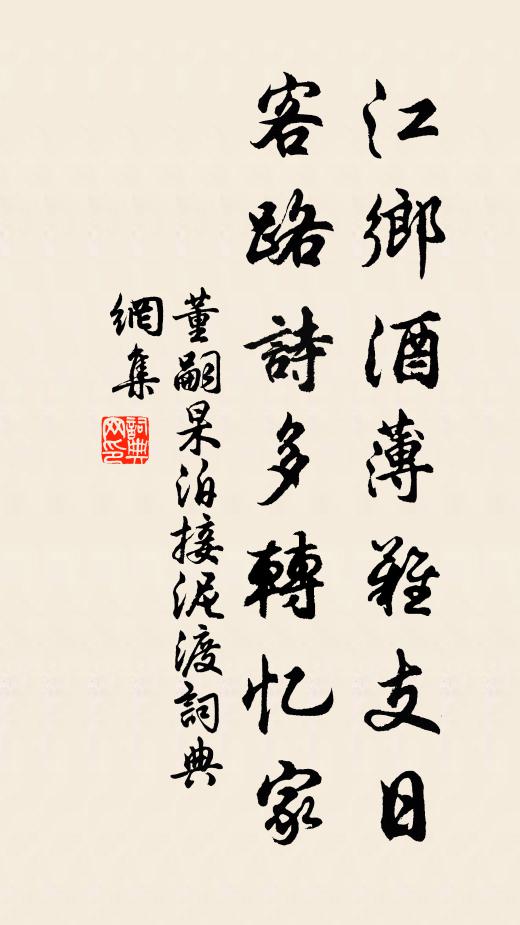 江鄉酒薄難支日
客路詩多轉忆家
董嗣杲泊接泥渡詞典
網集
詞典网印